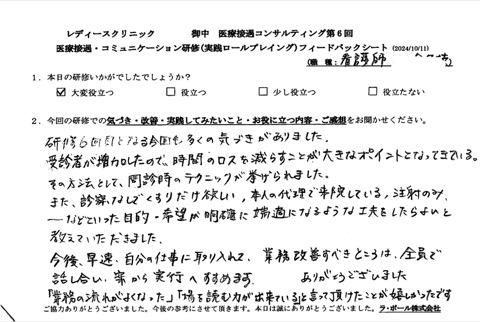 レディースクリニック 御中 医療接遇コンサルティング第6回
医療接遇・コミュニケーション研修(実践ロールプレイング)フィードバックシート (2024/10/11)
(職 種:看護師
1.本日の研修いかがでしたでしょうか?
☑ 大変役立つ □ 役立つ □ 少し役立つ □ 役立たない
2.今回の研修での気づき・改善・実践してみたいこと・お役に立つ内容・ご感想をお聞かせください。
研修6回目となる今回も多くの気づきがありました。
受診者が増加したので、時間のロスを減らすことが大きなポイントとなってきている。
その方法として、問診時のテクニックが挙げられました。
また、診察なしでくすりだけ欲しい、本人の代理で来院している、注射のみ、
ーなどといった目的・希望が明確に端適になるような工夫をしたらよいと
教えていただきました。
今後、早速、自分の仕事に取り入れて、業務改善すべきところは、全員で
話し合い、案から実行へすすめます。 ありがとうございました
「業務の流れがよくなった」「場を読む力が出来ている」と言って頂けたことが嬉しかったです
ご協力ありがとうございました。今後の参考にさせて頂きます。本日は誠にありがとうございました。 ラ・ポール株式会社